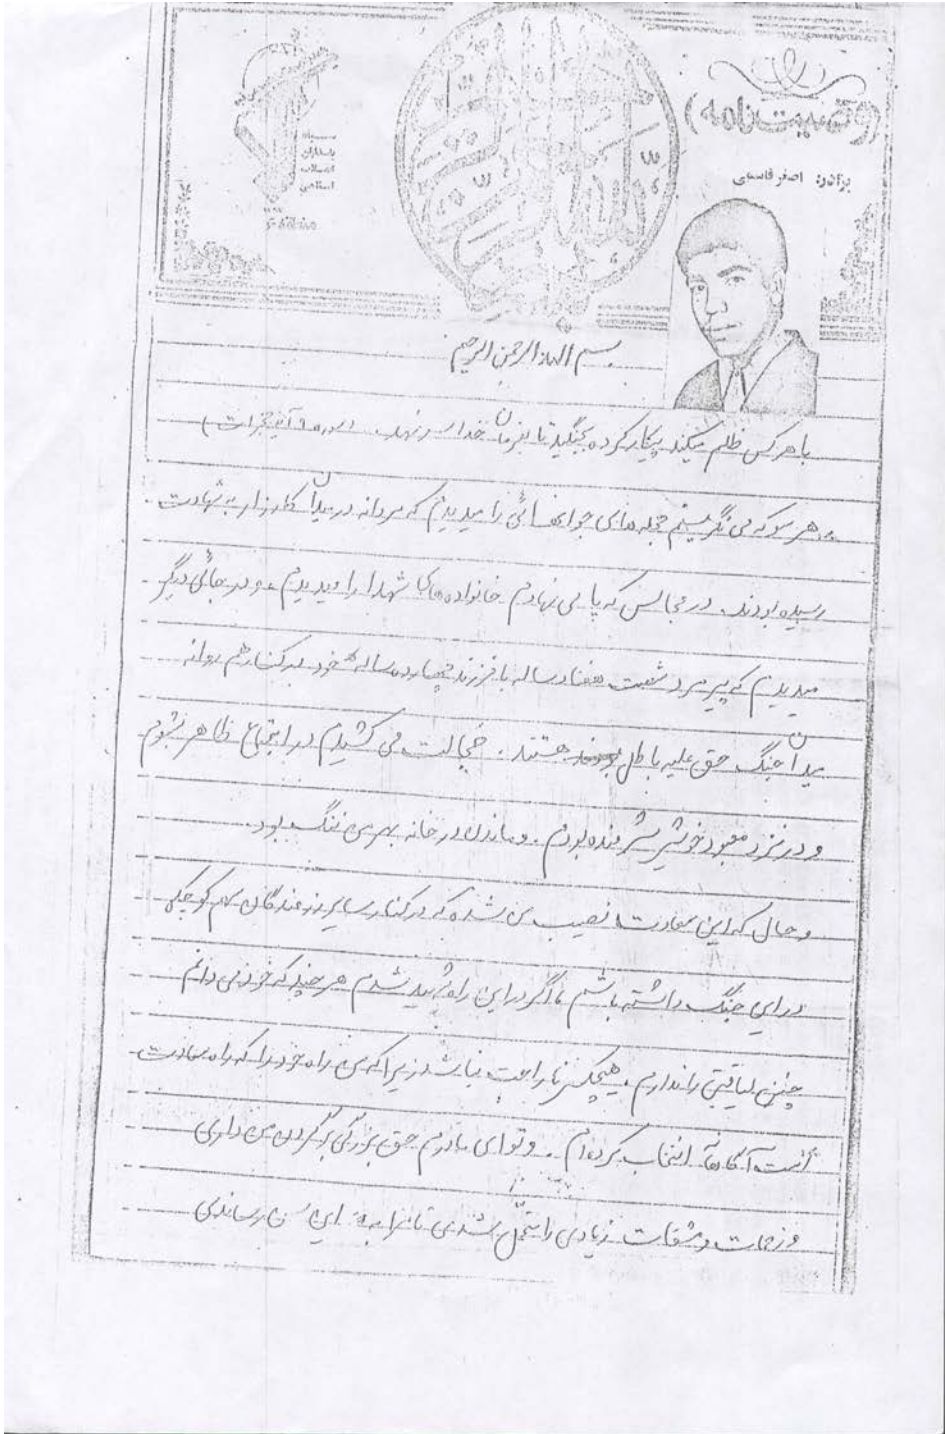 (وصیت‌نامه)
برادر: اصغر قاسمی
سپاه
پاسداران
انقلاب
اسلامی
بسم الله الرحمن الرحیم
با هر کس ظلم میکند پیکار کرده بجنگید تا بفرمان خدا سر نهد. (سوره ۹ آیه حجرات)
هر سو که می نگریستم حجله های جوانهائی را میدیدم که مردانه در میدان کارزار به شهادت
رسیده بودند. در مجالس که پا می نهادم خانواده های شهدا را میدیدم و در جائی دیگر
میدیدم که پیرمرد شصت هفتاد ساله با فرزند چهارده ساله خود در کنار هم روانه
میدان جنگ حق علیه باطل هستند. خجالت می کشیدم در اجتماع ظاهر بشوم
و در نزد معبود خویش شرمنده بودم. و ماندن در خانه بهر من ننگ بود.
و حال که این سعادت نصیب من شده که در کنار سایر رزمندگان سهم کوچکی
در این جنگ داشته باشم اگر در این راه شهید شدم هر چند که خود می دانم
چنین لیاقتی را ندارم، هیچکس ناراحت نباشد زیرا که من راه خود را که راه سعادت
است آگاهانه انتخاب کرده ام. و تو ای مادرم حق بزرگی بر گردن من داری
و زحمات و مشقات زیادی را متحمل شدی تا مرا به این رساندی